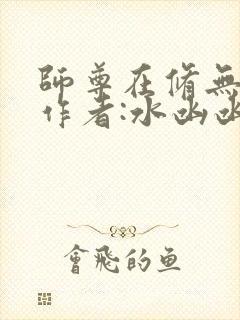 師尊在脩無
作者:水凼凼
會飛的鱼